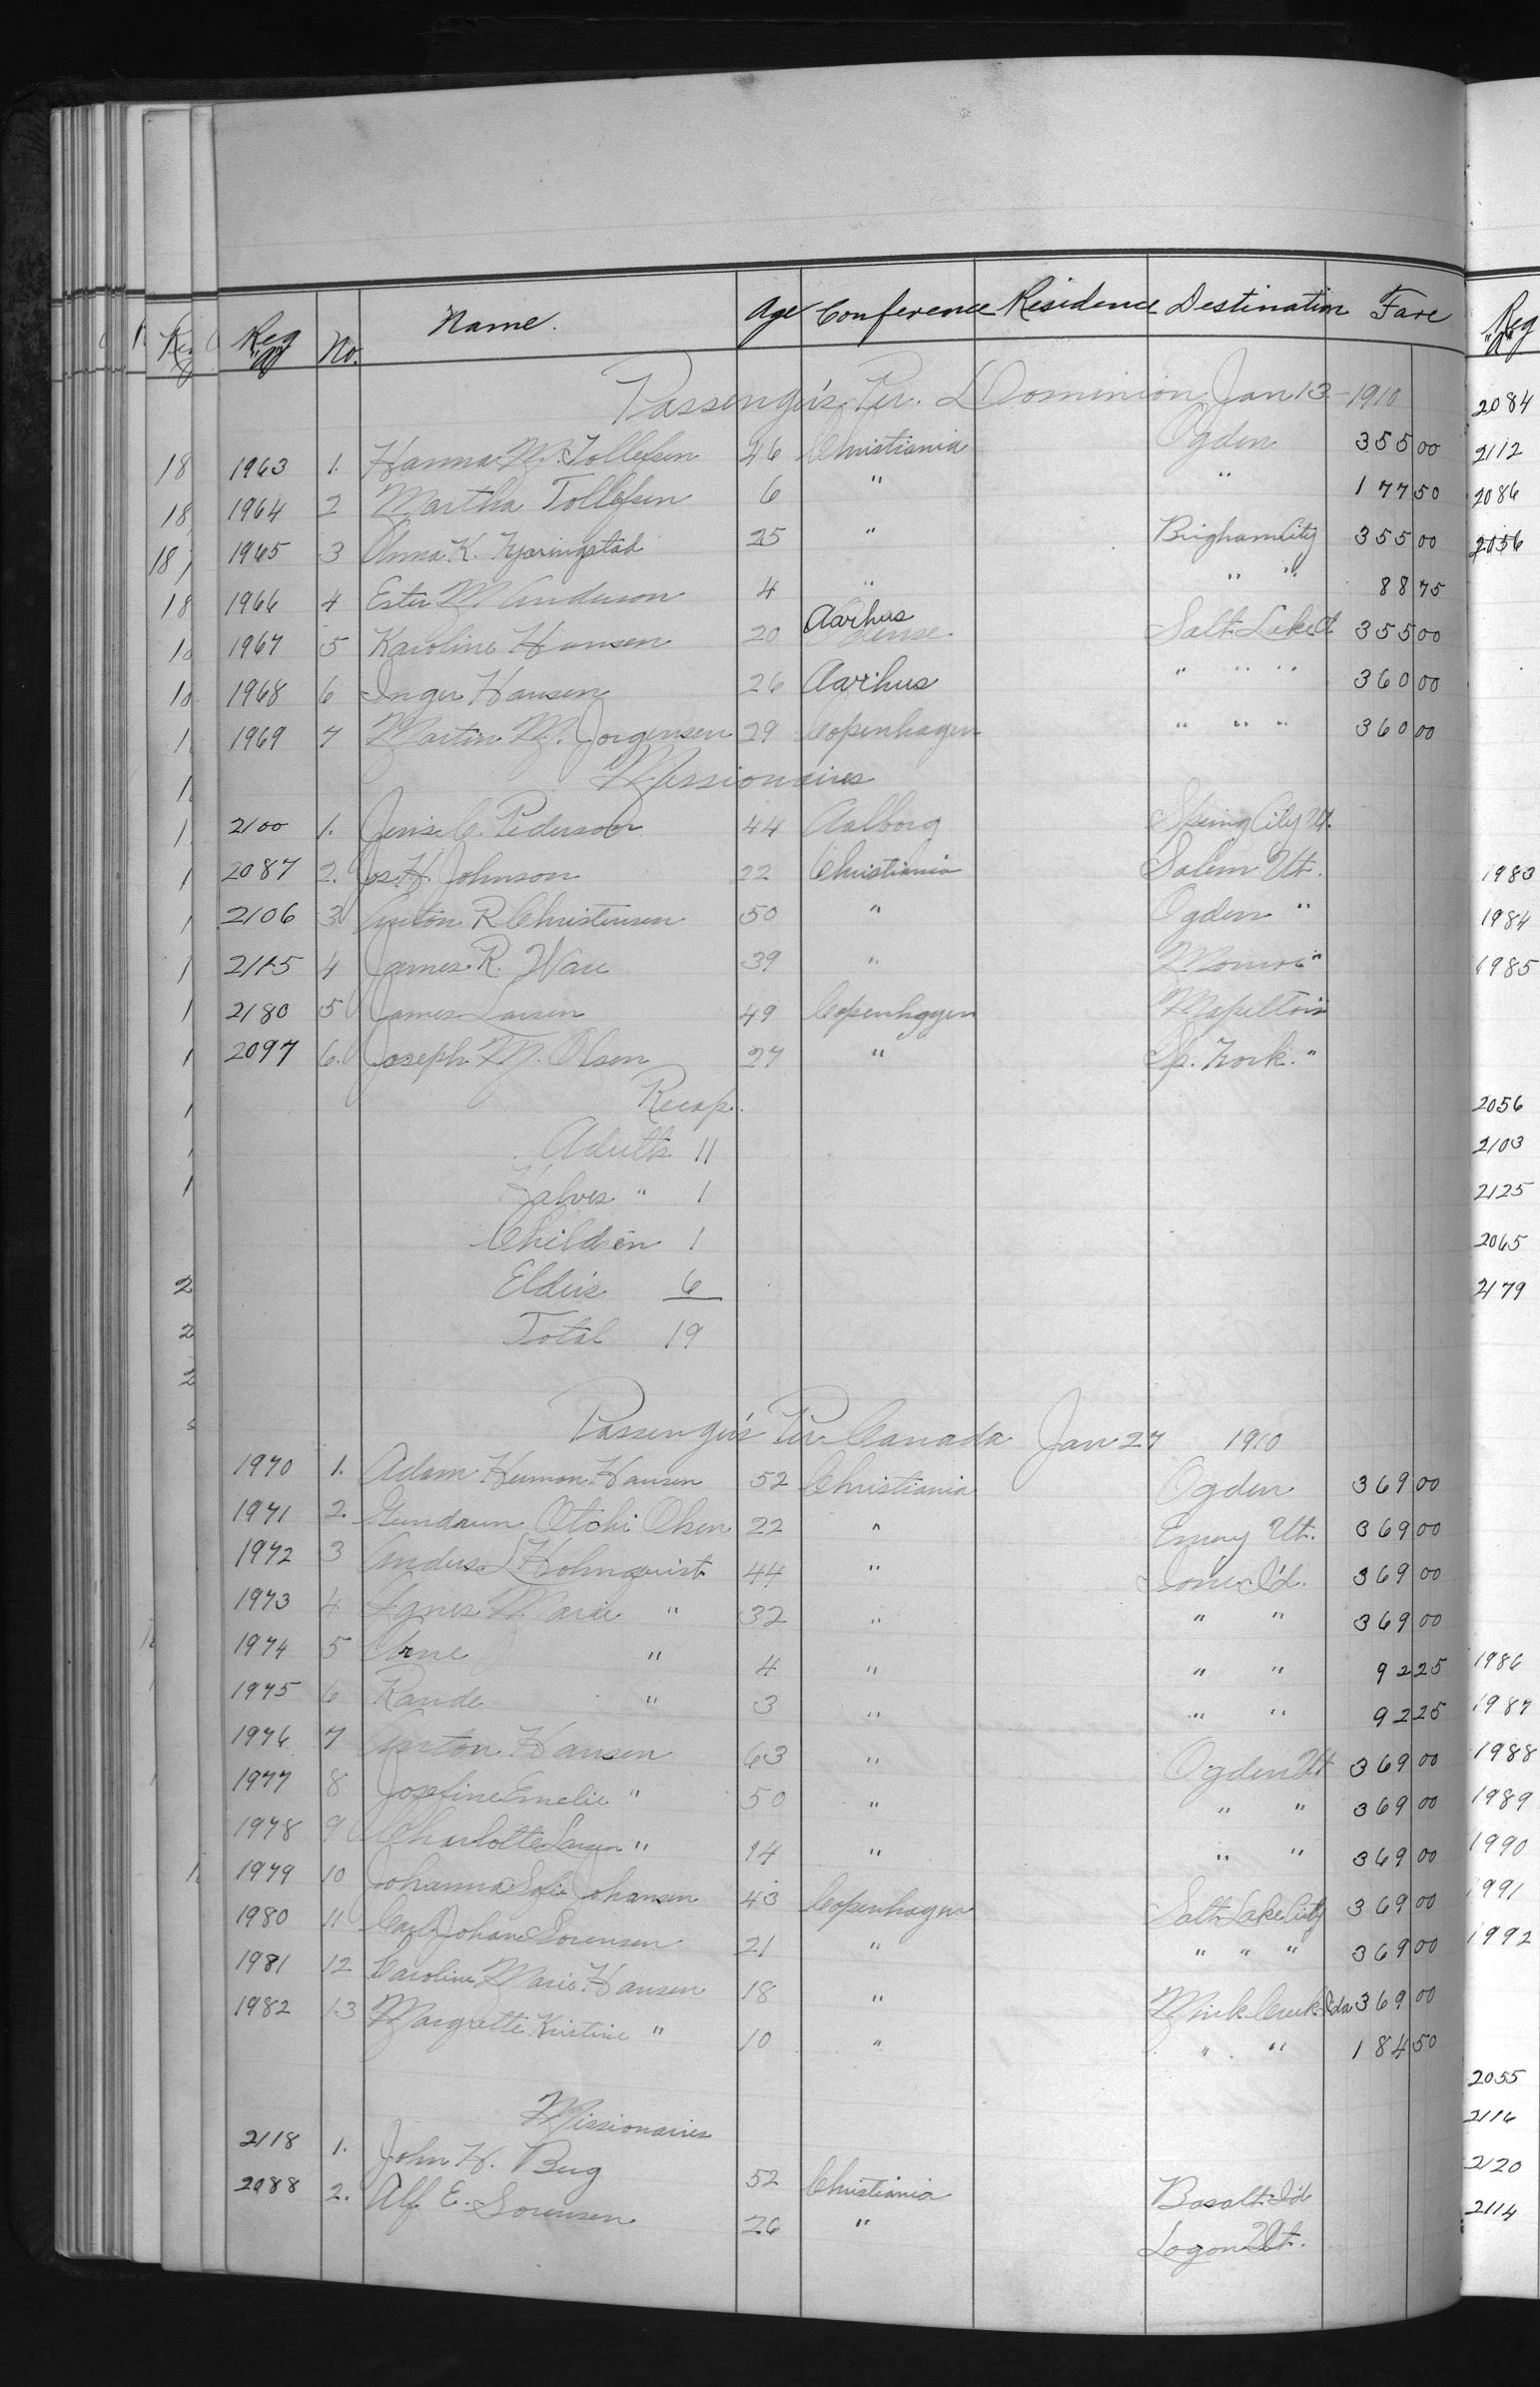 Reg "A" No. Name. Age Conference Residence Destination Fare
Passengers Per. Dominion Jan 13 - 1910
1963 1. Hanna M. Tollefsen 46 Christiania Ogden 355 00
1964 2 Martha Tollefsen 6 " " 177 50
1965 3 Anna K. 25 " Brigham City 355 00
1966 4 Ester M. Anderson 4 " " " 88 75
1967 5 Karoline Hansen 20 Aarhus Salt Lake Ct 355 00
1968 6 Inger Hansen 26 Aarhus " " " 360 00
1969 7 Martin M. Jorgensen 29 Copenhagen " " " 360 00
Missionaries
2100 1. Jens C. Pederson 44 Aalborg Spring City Ut.
2087 2. Jos. H. Johnson 22 Christiania Salem Ut.
2106 3 Anton R Christensen 50 " Ogden "
2115 4 James R. Ware 39 " Monroe "
2180 5 James Larsen 49 Copenhagen Mapelton
2097 6. Joseph M. Olsen 27 " Sp. Fork. "
Recap.
Adults 11
Halves " 1
Children 1
Elders 6
Total 19
Passengers Per Canada Jan 27 1910
1970 1. Adam Herman Hansen 52 Christiania Ogden 369 00
1971 2. Gundrun Olsen 22 " Emery Ut. 369 00
1972 3 Anders L Holmqvist 44 " Iona Id. 369 00
1973 4 Agnes Marie " 32 " " " 369 00
1974 5 Arne " 4 " " " 92 25
1975 6 Rande " 3 " " " 92 25
1976 7 Anton Hansen 63 " Ogden Ut 369 00
1977 8 Josefine Emelie " 50 " " " 369 00
1978 9 Charlotte Larsen " 14 " " " 369 00
1979 10 Johanna Sofie Johansen 43 Copenhagen Salt Lake City 369 00
1980 11 Carl Johan Sorensen 21 " " " " 369 00
1981 12 Caroline Marie Hansen 18 " Mink Creek Ida 369 00
1982 13 Margrette Kirstine " 10 " " " 184 50
Missionaries
2118 1. John H. Berg 52 Christiania Basalt Id
2088 2. Alf E. Sorensen 26 " Logan Ut.
Reg "A"
2084
2112
2086
2056
1983
1984
1985
2056
2103
2125
2065
2179
1986
1987
1988
1989
1990
1991
1992
2055
2116
2120
2114